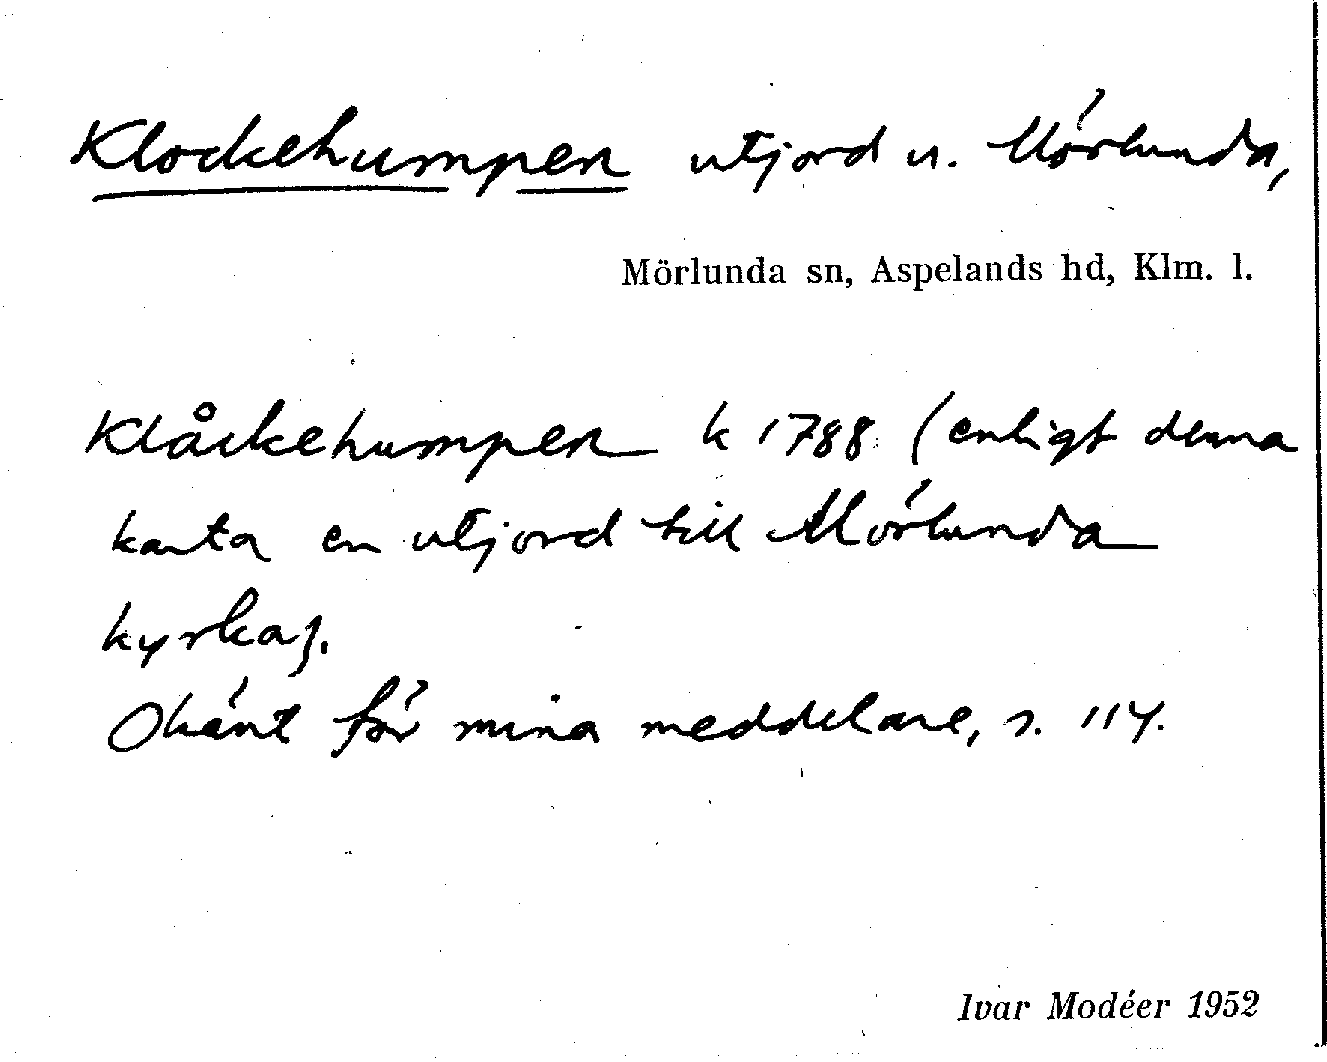 Klockehumpen utjord u. Mörlunda,
Mörlunda sn, Aspelands hd, Klm. l.
Klåckehumpen k 1788 (enligt denna
karta en utjord till Mörlunda
kyrkaj.
Okänt för mina meddelare, s. 114.
Ivar Modéer 1952